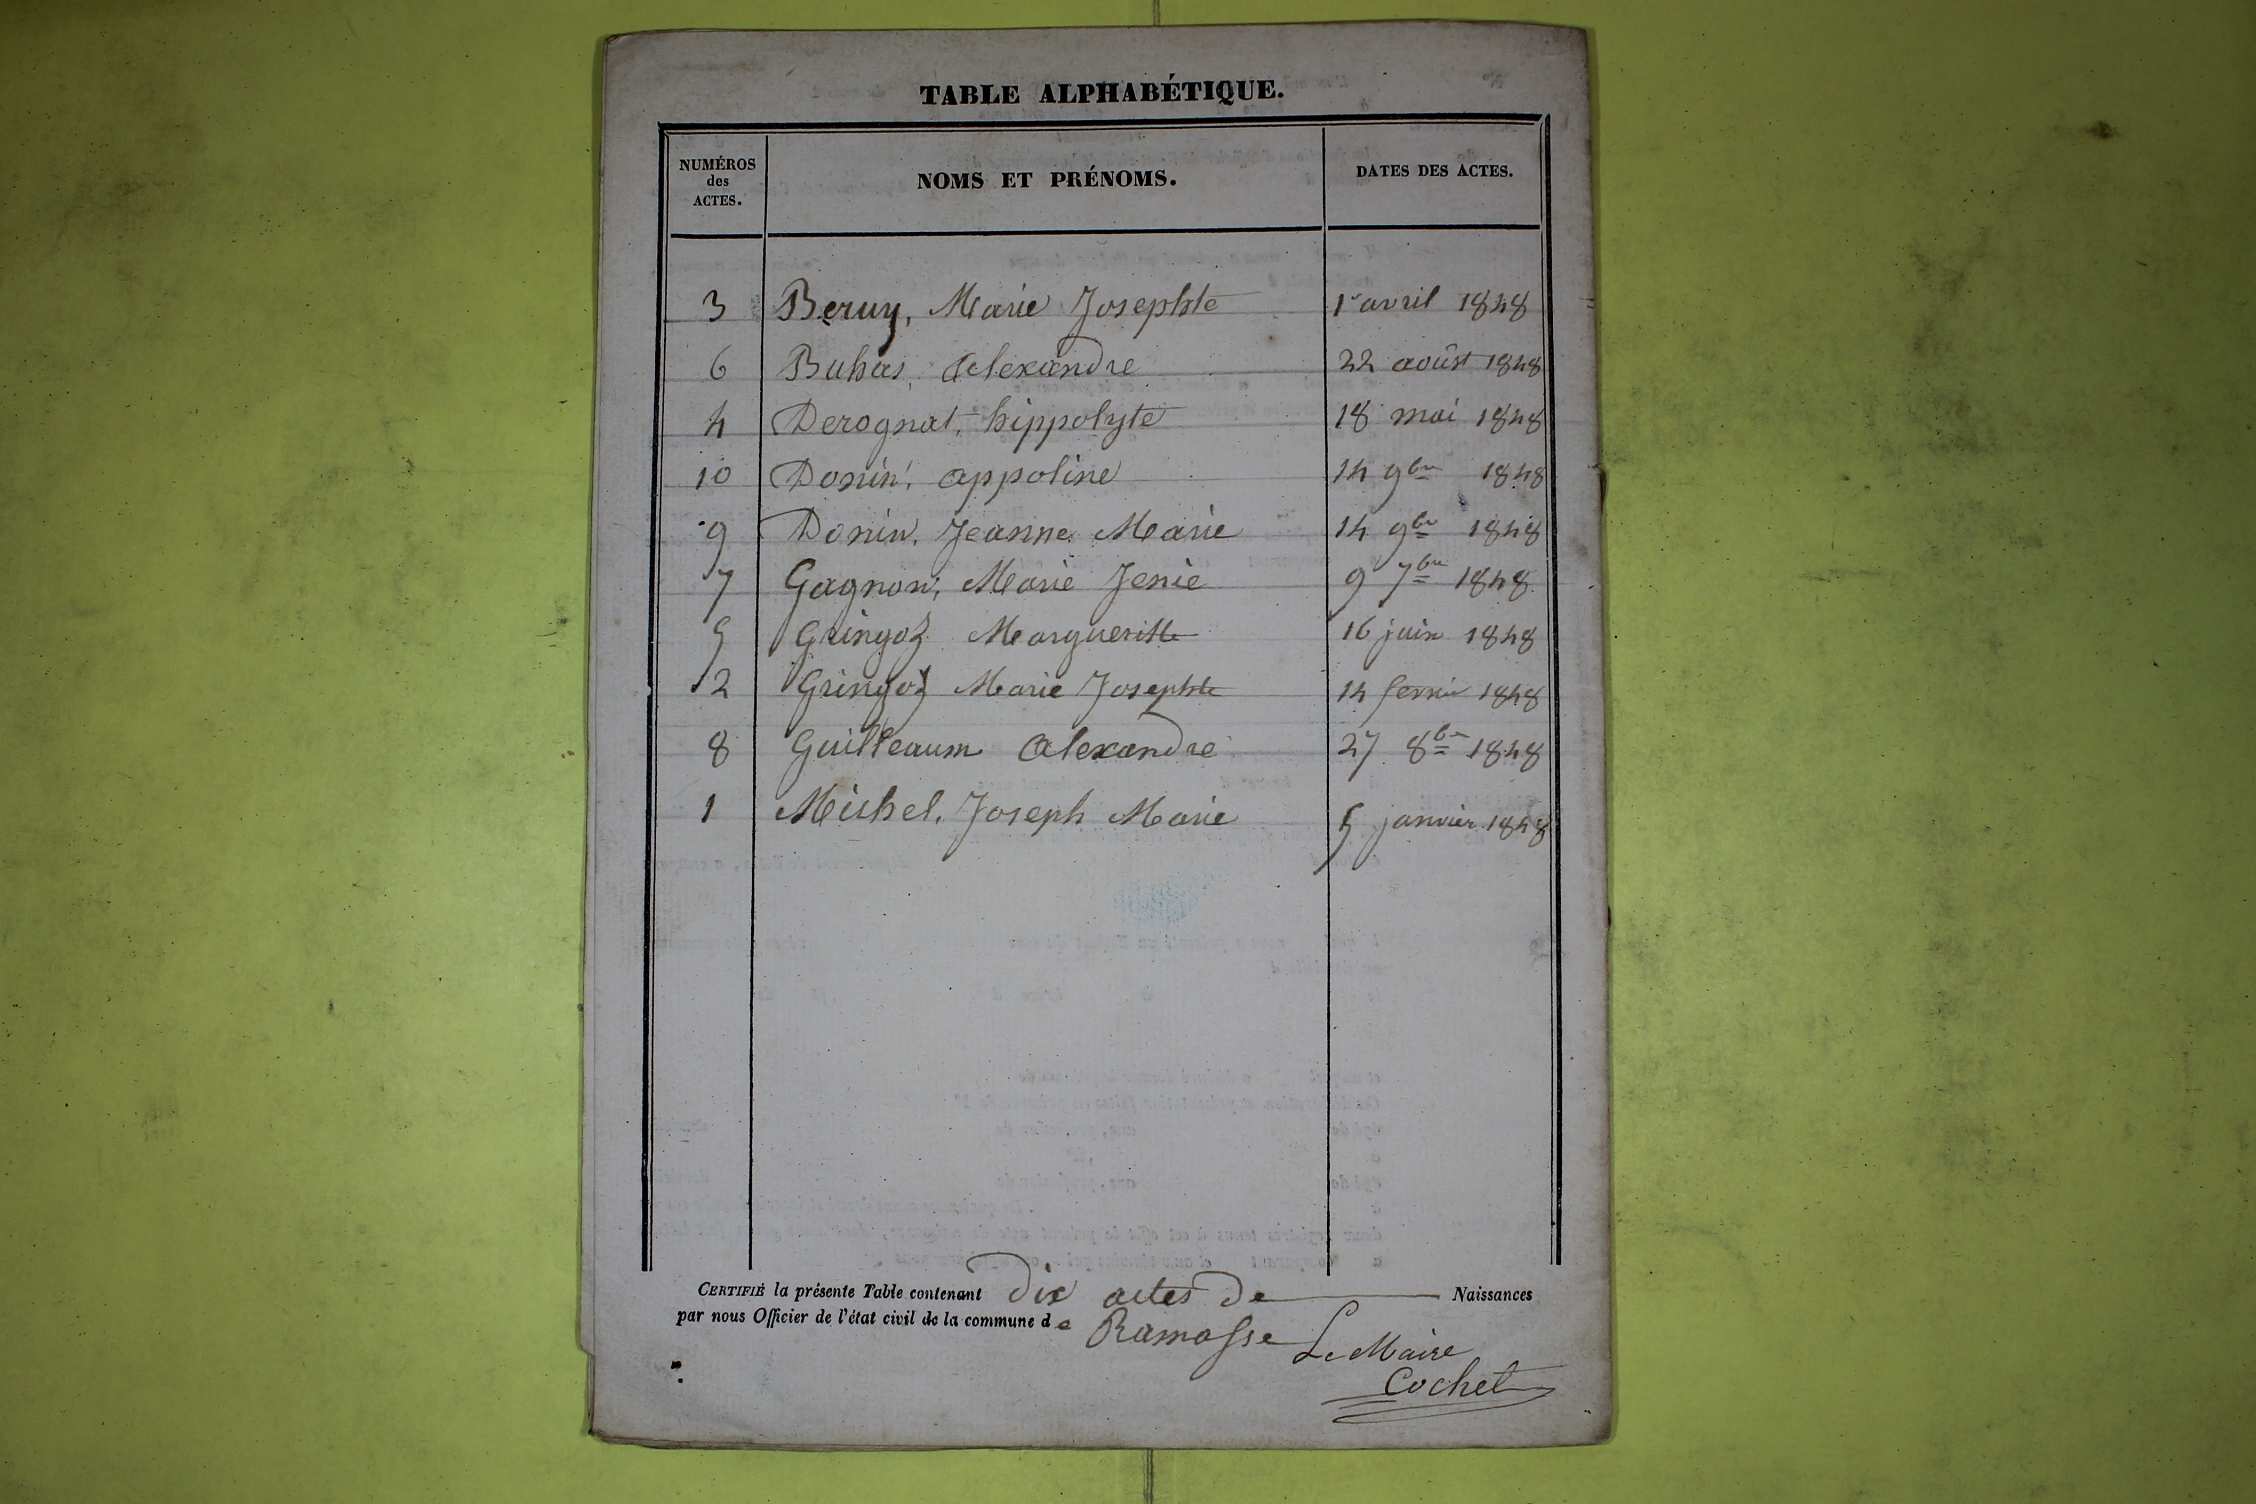 TABLE ALPHABÉTIQUE.
NUMÉROS des ACTES. NOMS ET PRÉNOMS. DATES DES ACTES.
3 Beruy, Marie Josephte 1r avril 1848
6 Buhas, Alexandre 22 août 1848
4 Derognat, hippolyte 18 mai 1848
10 Donin, appoline 14 9bre 1848
9 Donin, Jeanne Marie 14 9bre 1848
7 Gagnon, Marie Jenie 9 7bre 1848
5 Gringoz Margueritte 16 juin 1848
2 Gringoz Marie Josephte 14 1848
8 Guilleaum Alexandre 27 8bre 1848
1 Michel, Joseph Marie 5 janvier 1848
CERTIFIÉ la présente Table contenant dix actes de Naissances
par nous Officier de l'état civil de la commune de Ramasse
Le Maire
Cochet